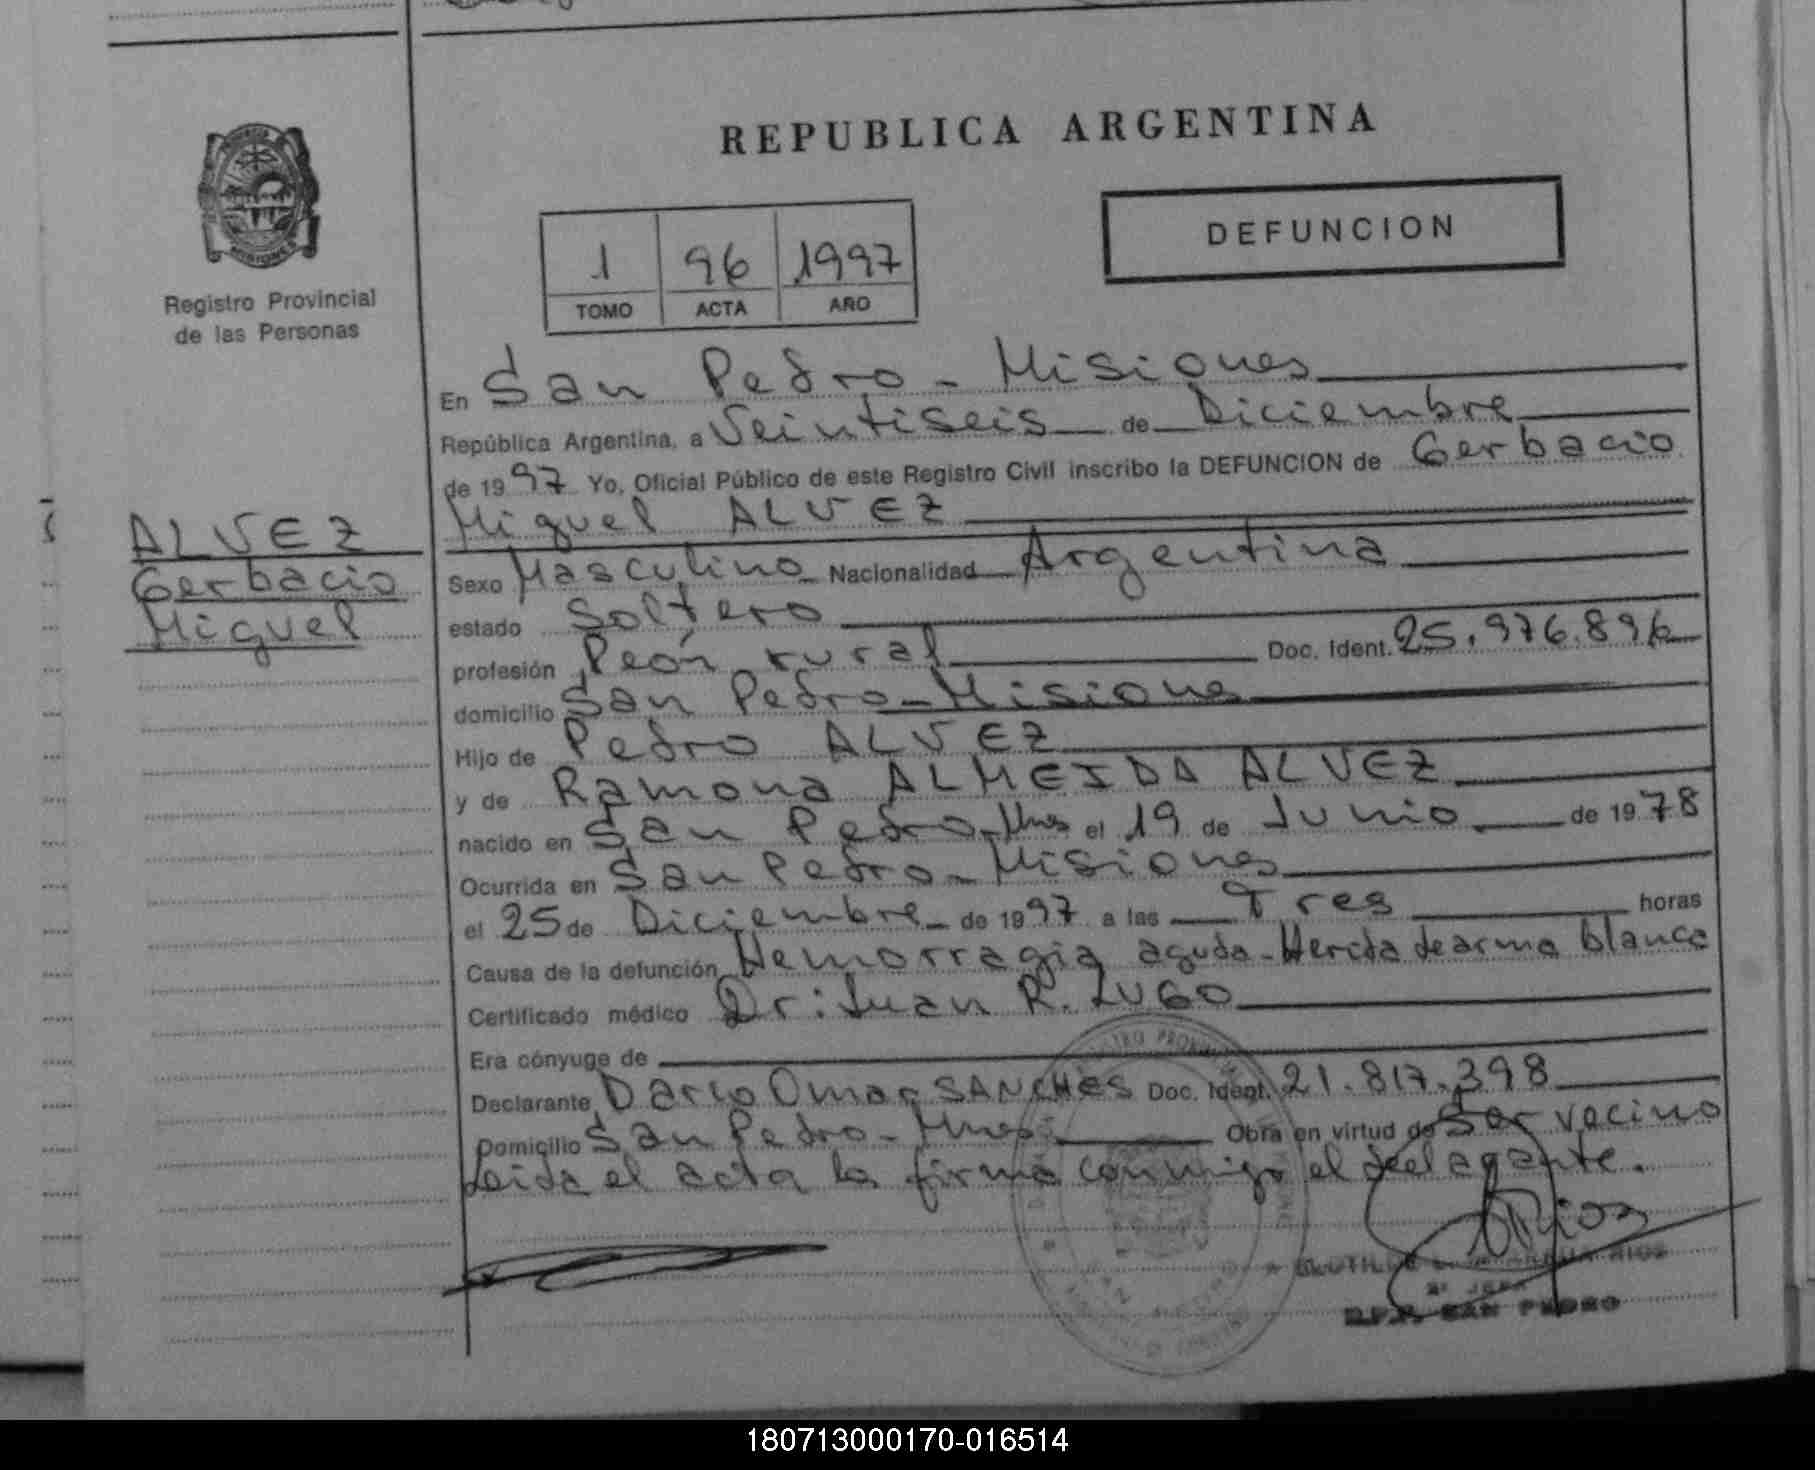 REPUBLICA ARGENTINA
DEFUNCION
1 96 1997
TOMO ACTA AÑO
Registro Provincial
de las Personas
ALVEZ
Gerbacio
Miguel
En San Pedro - Misiones
República Argentina, a Veintiseis de Diciembre
de 1997 Yo, Oficial Público de este Registro Civil inscribo la DEFUNCION de Gerbacio
Miguel ALVEZ
Sexo Masculino Nacionalidad Argentina
estado Soltero
profesión Peón rural Doc. Ident. 25.976.896
domicilio San Pedro - Misiones
Hijo de Pedro ALVEZ
y de Ramona ALMEIDA ALVEZ
nacido en San Pedro - Mnes el 19 de Junio de 1978
Ocurrida en San Pedro - Misiones
el 25 de Diciembre de 1997 a las Tres horas
Causa de la defunción Hemorragia aguda - Herida de arma blanca
Certificado médico Dr: Juan R. LUGO
Era cónyuge de
Declarante Dario Omar SANCHES Doc. Ident. 21.817.398
Domicilio San Pedro - Mnes Obra en virtud de Ser vecino
Leida el acta la firma conmigo el declarante.
Rios
RIOS
SAN PEDRO
180713000170-016514